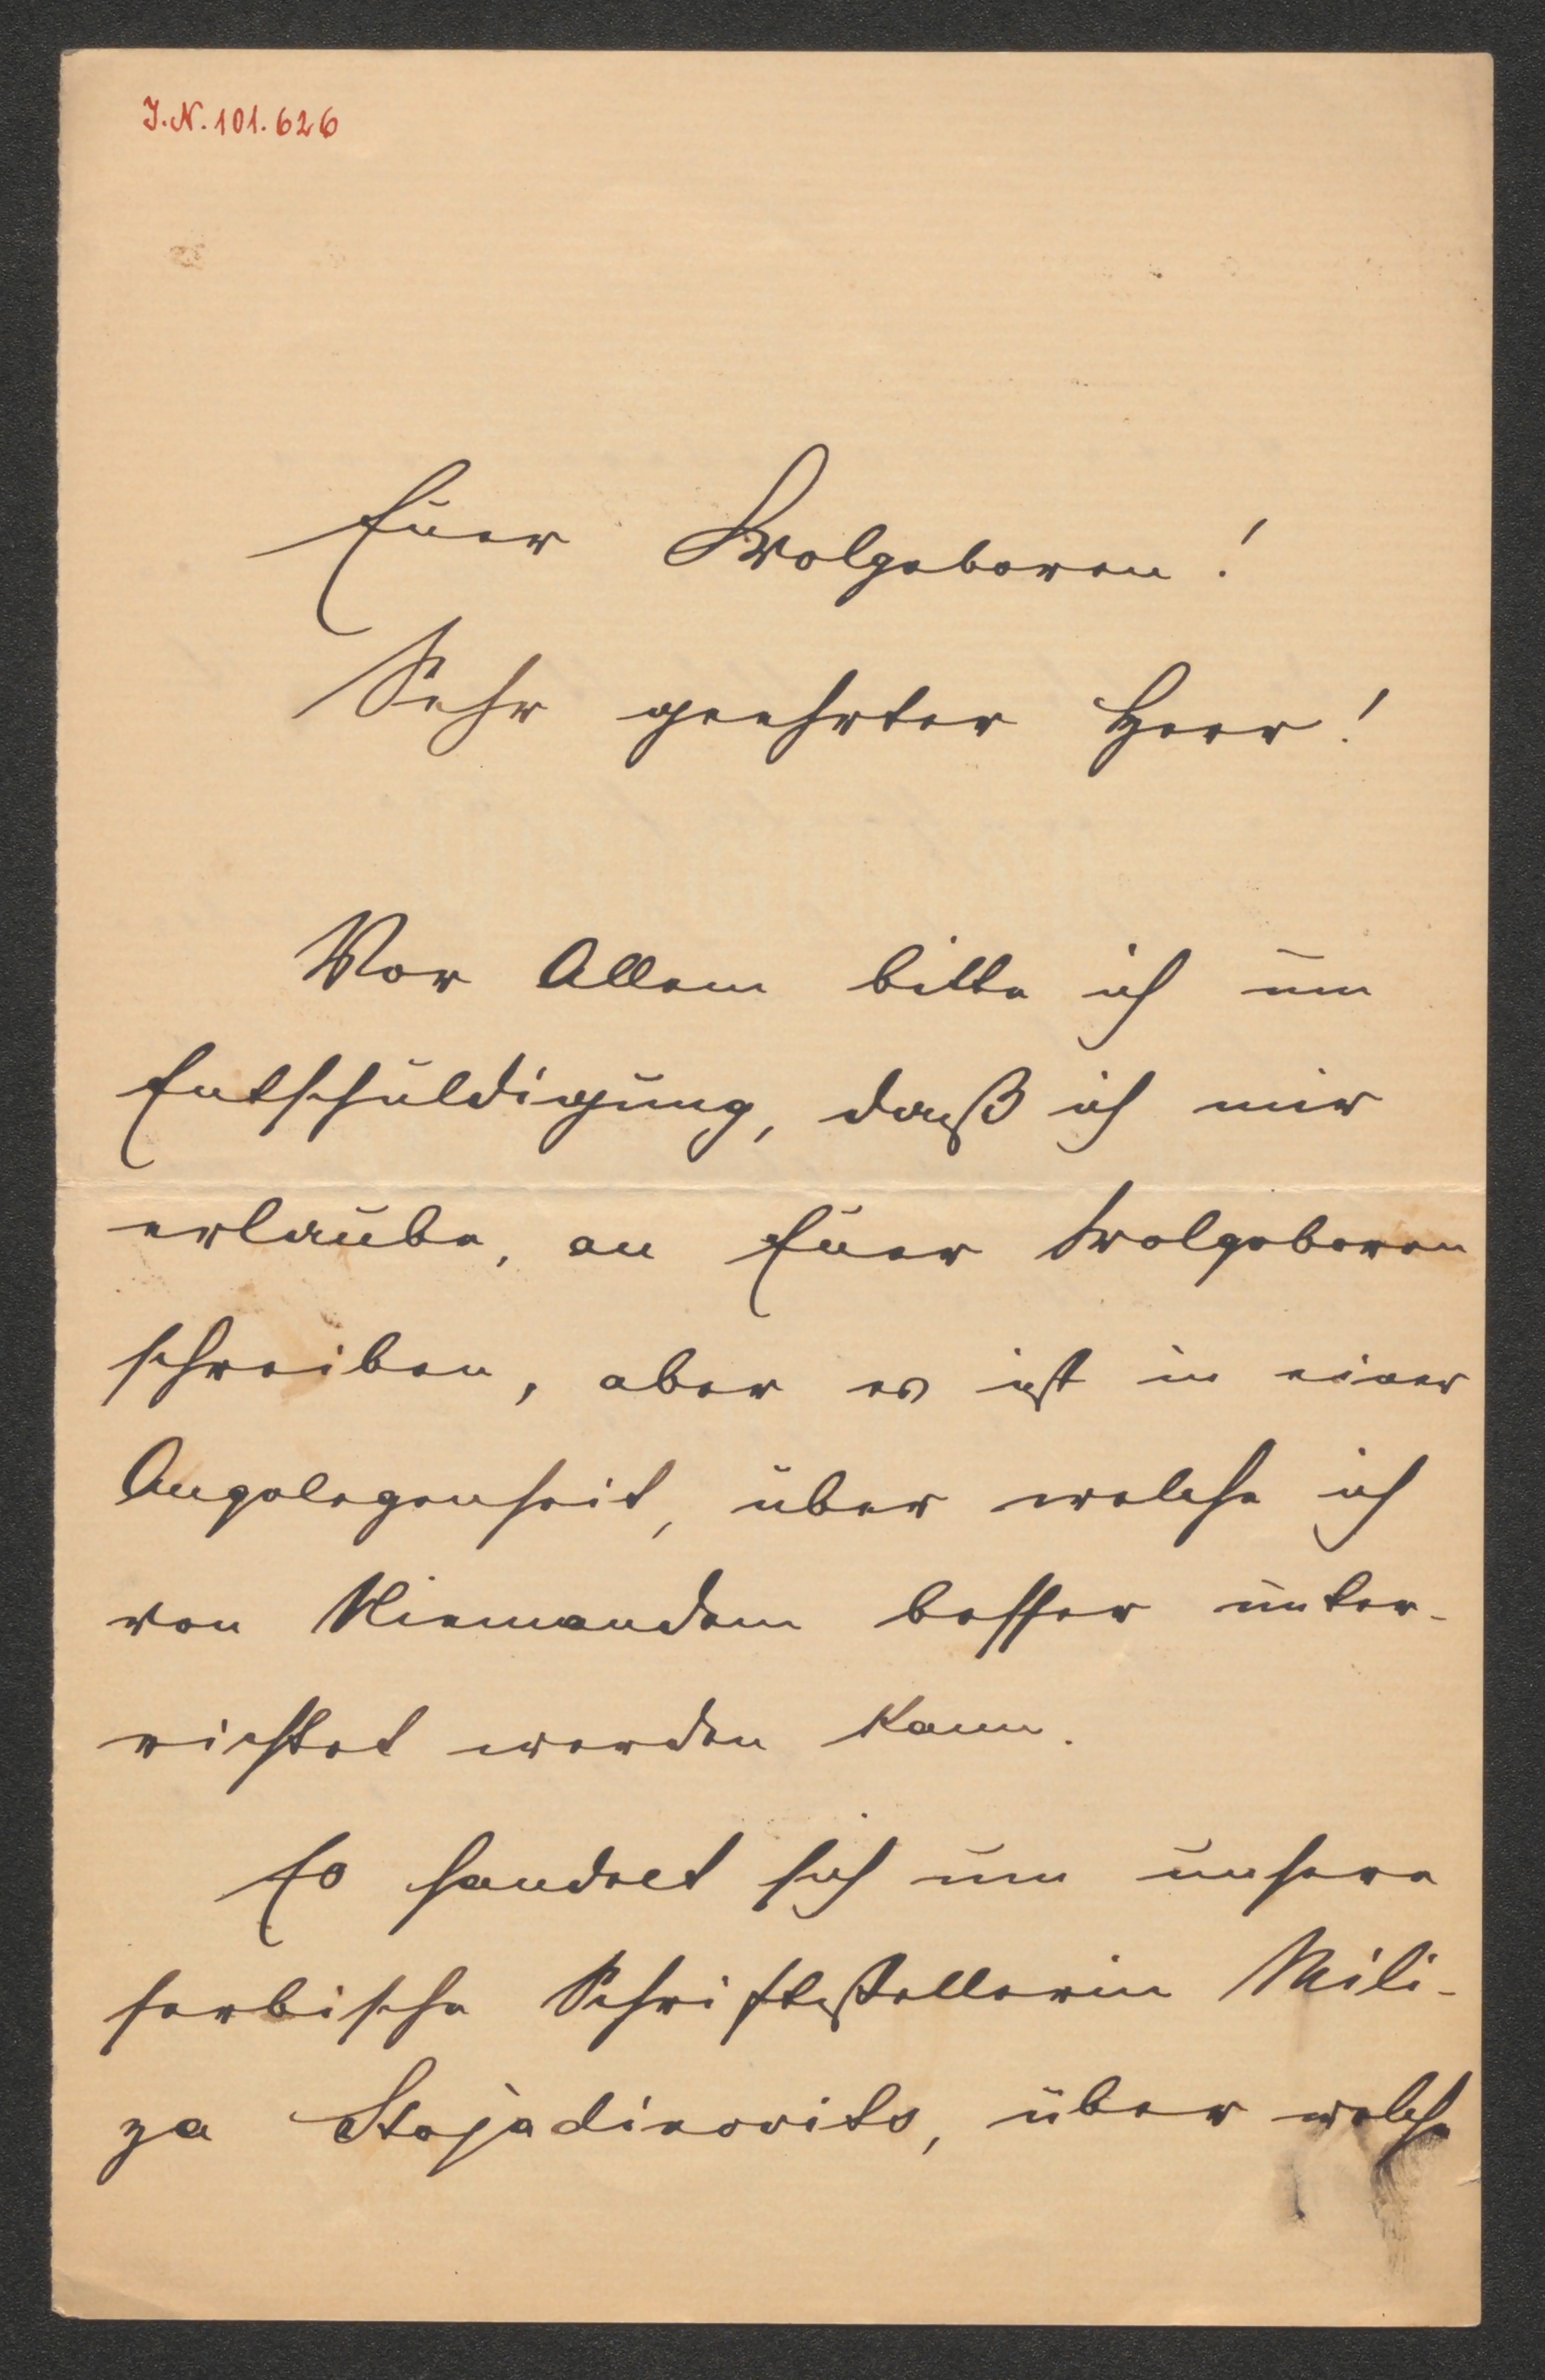 J.N. 101.626
Euer Wolgeboren!
Sehr geehrter Herr!
Vor Allem bitte ich um
Entschuldigung, daß ich mir
erlaube, an Euer Wolgeboren
schreiben, aber es ist in einer
Angelegenheit, über welche ich
von Niemandem besser unter-
richtet werden kann.
Es handelt sich um unsere
serbische Schriftstellerin Mili-
za Stojadinovits, über welche